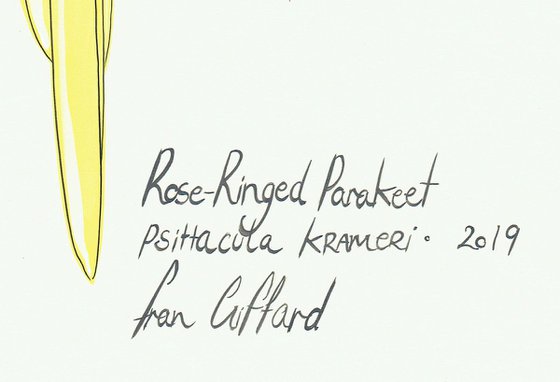 Rose-Ringed Parakeet
Psittacula Krameri. 2019
fran Giffard